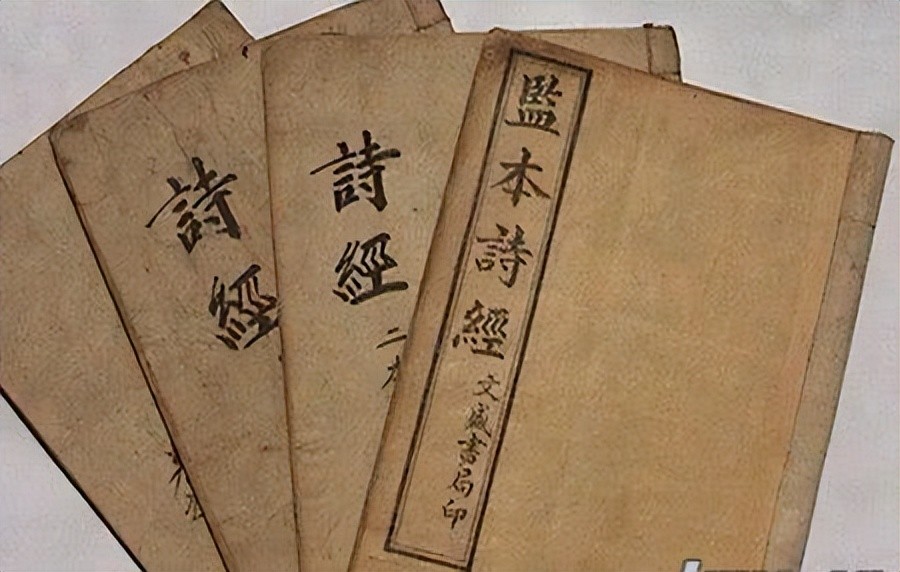 監本詩經
文盛書局印
詩經
二
詩經